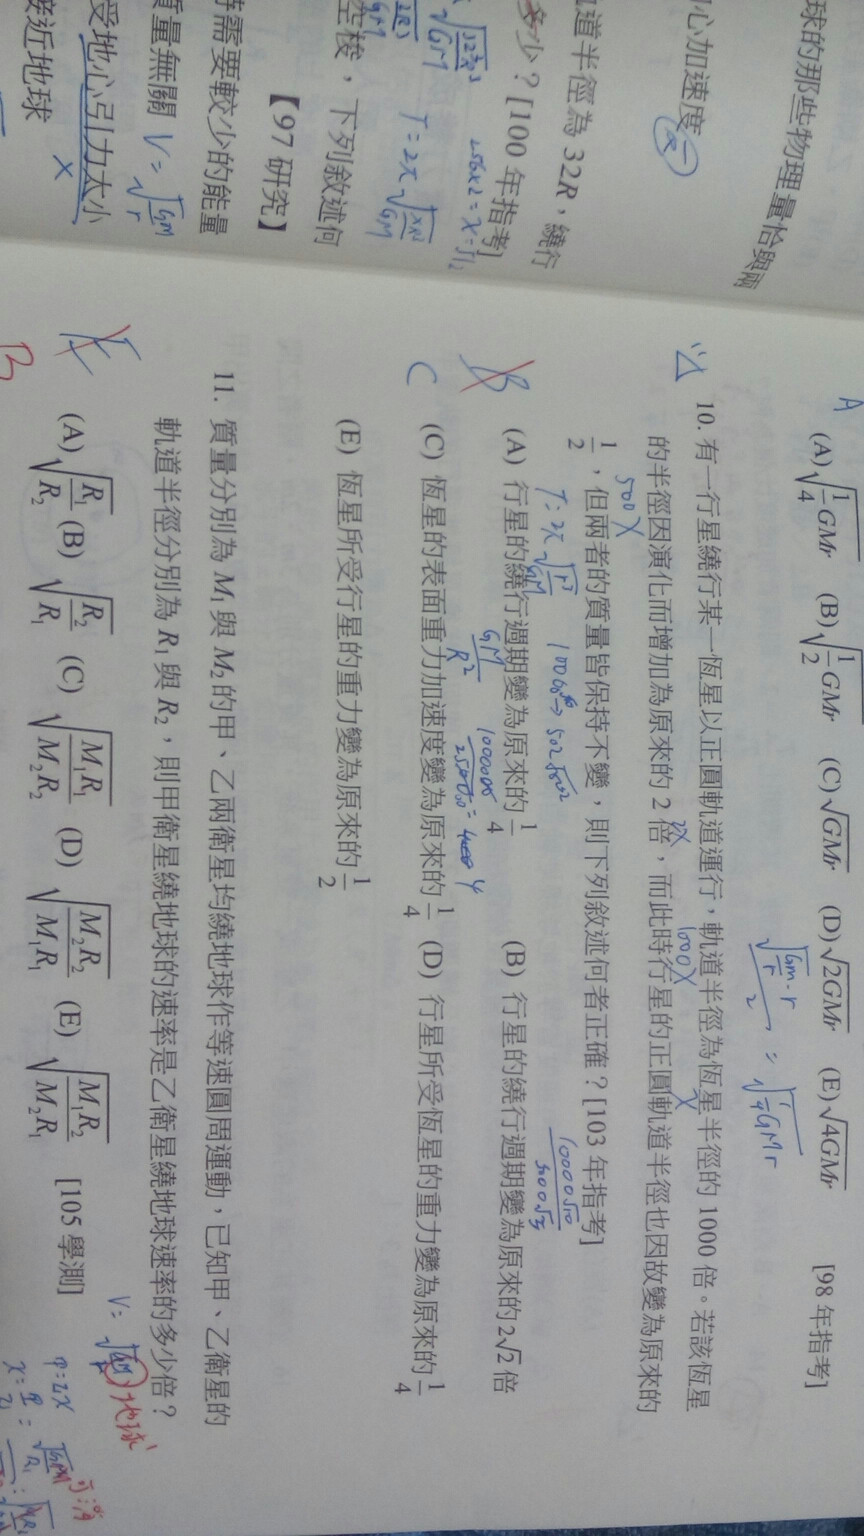 球的那些物理量恰與兩
心加速度
道半徑為 32R，繞行
多少？[100 年指考]
T=2π
空梭，下列敘述何
【97 研究】
需要較少的能量
質量無關 V=√GM/r
受地心引力大小 ×
接近地球
A
(A)√(1/4)GMr (B)√(1/2)GMr (C)√GMr (D)√2GMr (E)√4GMr [98 年指考]
10. 有一行星繞行某一恆星以正圓軌道運行，軌道半徑為恆星半徑的 1000 倍。若該恆星
2X 1000X X
的半徑因演化而增加為原來的 2 倍，而此時行星的正圓軌道半徑也因故變為原來的
500X
1/2，但兩者的質量皆保持不變，則下列敘述何者正確？[103 年指考]
T=2π√r³/GM
B
(A) 行星的繞行週期變為原來的 1/4 (B) 行星的繞行週期變為原來的 2√2 倍
GM/R²
C
(C) 恆星的表面重力加速度變為原來的 1/4 (D) 行星所受恆星的重力變為原來的 1/4
(E) 恆星所受行星的重力變為原來的 1/2
11. 質量分別為 M₁ 與 M₂ 的甲、乙兩衛星均繞地球作等速圓周運動，已知甲、乙衛星的
軌道半徑分別為 R₁ 與 R₂，則甲衛星繞地球的速率是乙衛星繞地球速率的多少倍？
E
B
(A) √R₁/R₂ (B) √R₂/R₁ (C) √M₁R₁/M₂R₂ (D) √M₂R₂/M₁R₁ (E) √M₁R₂/M₂R₁ [105 學測]
地球